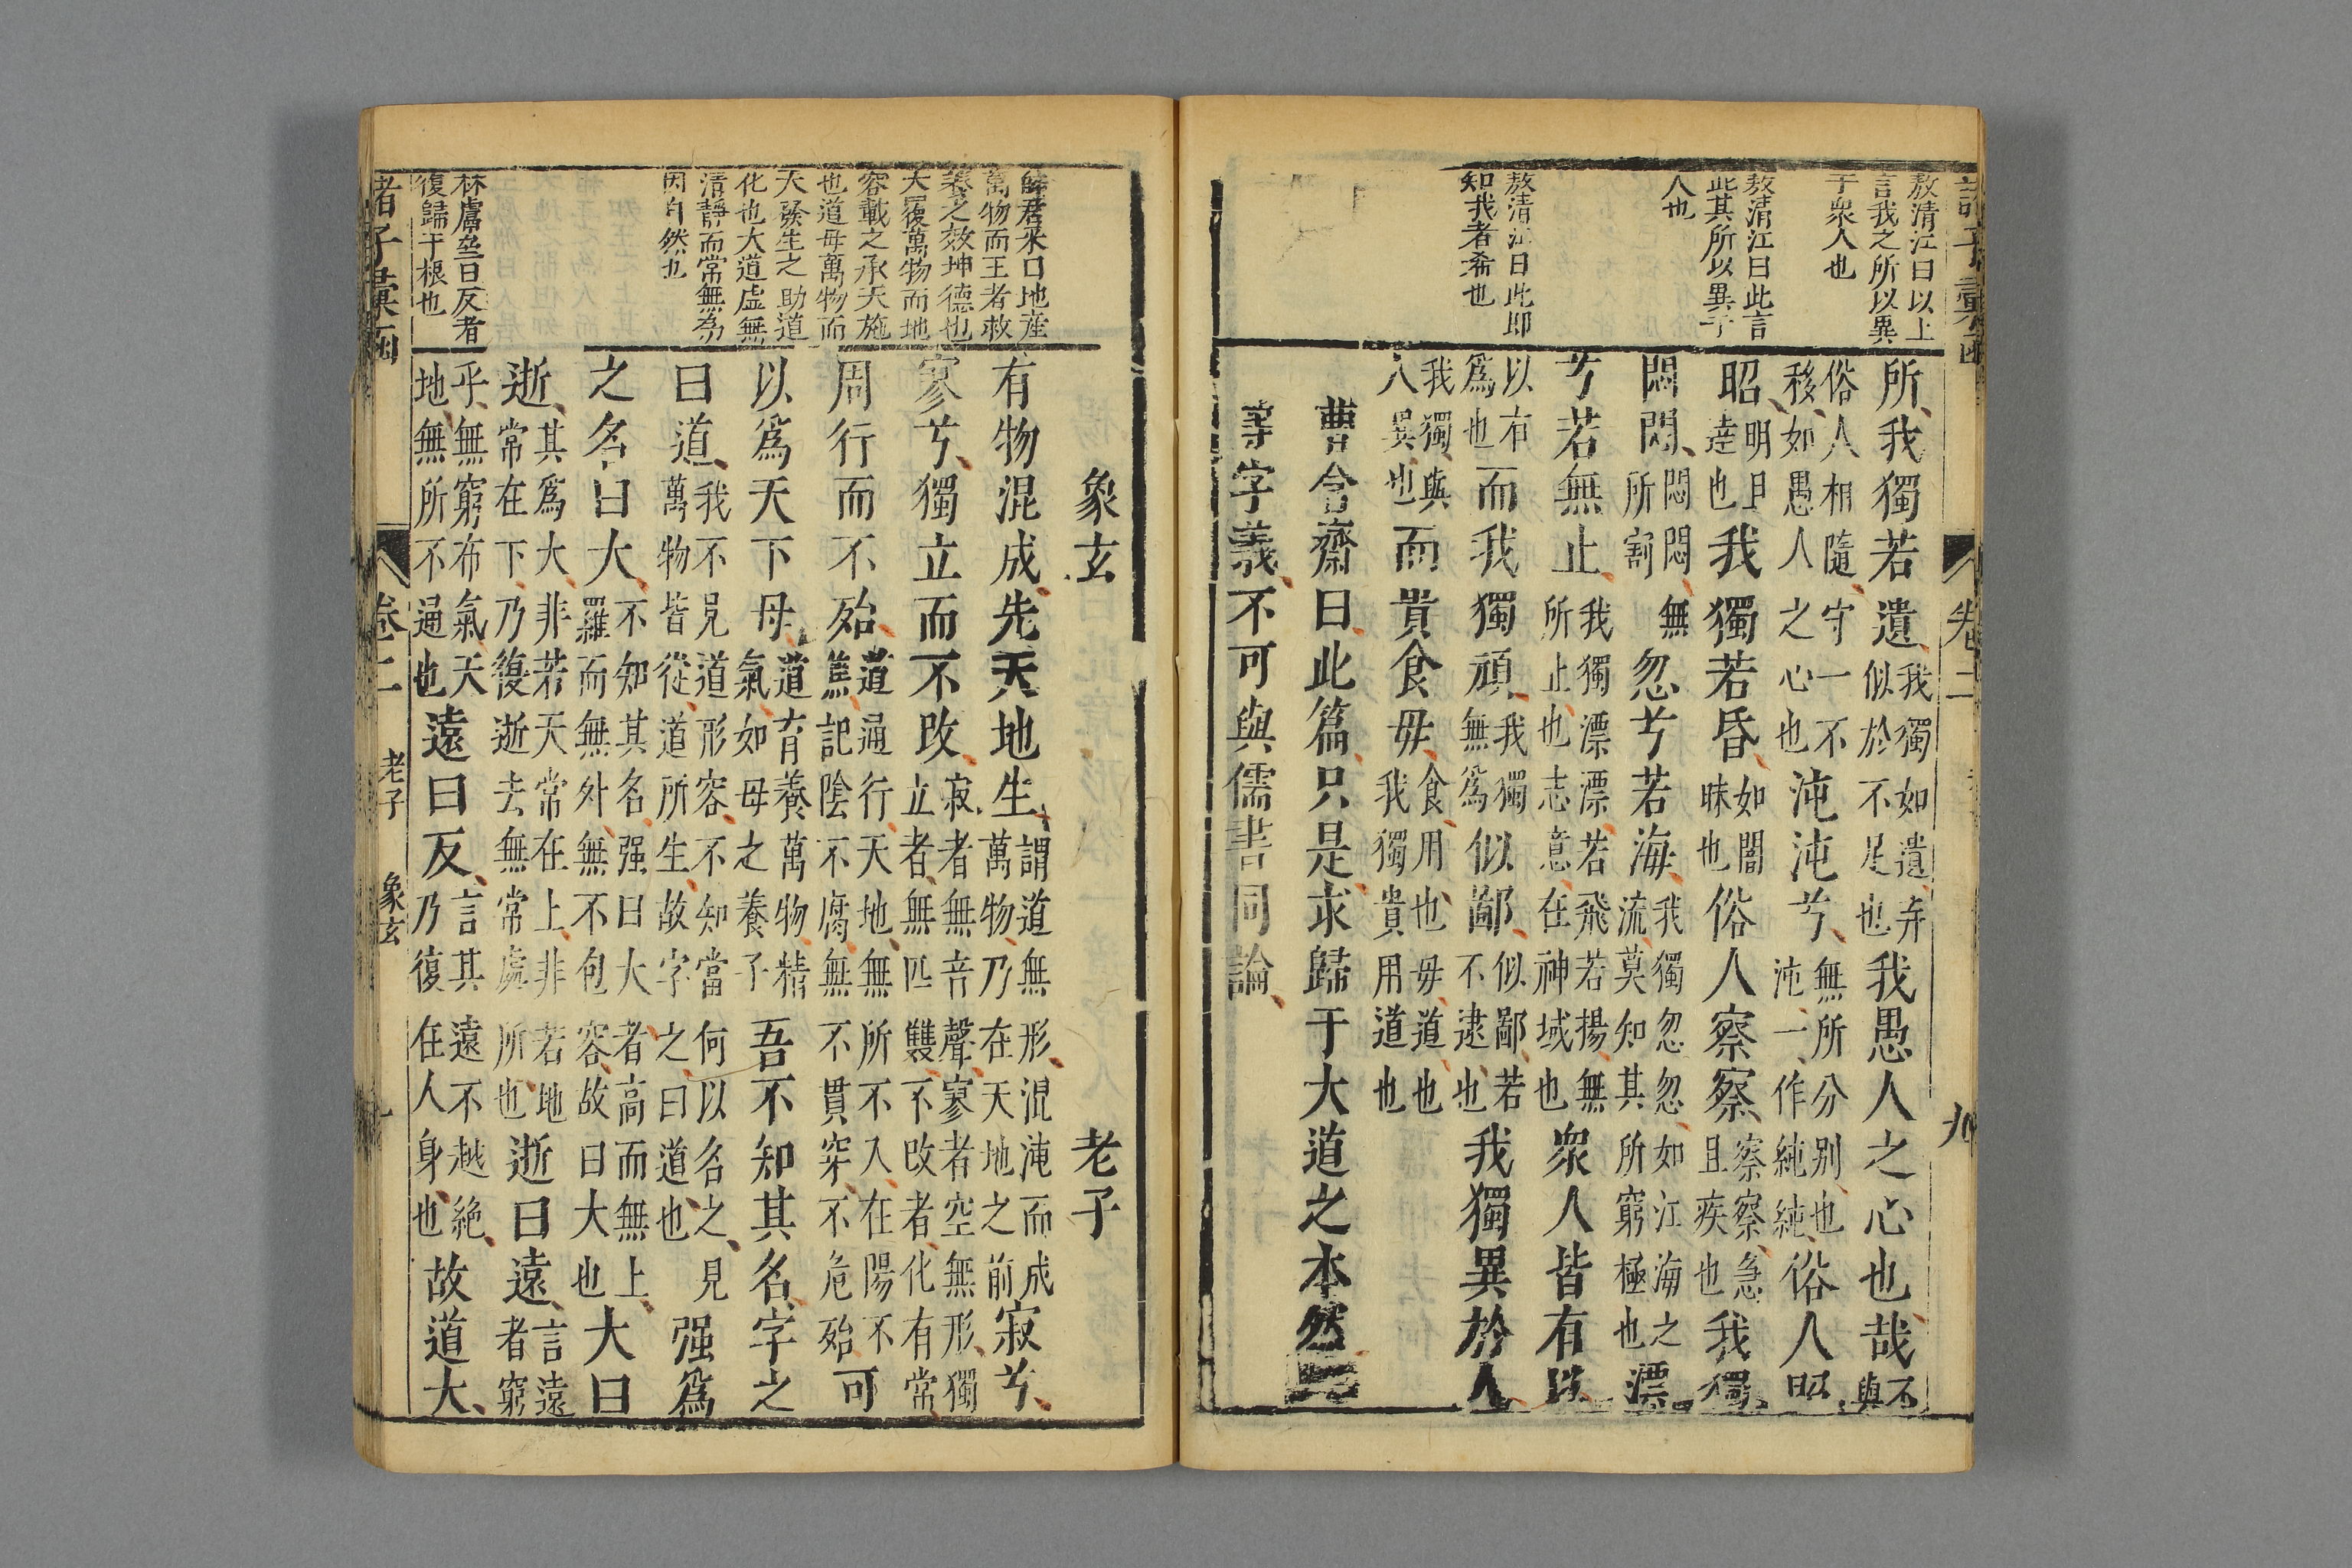 敖清江曰以上
言我之所以異
于衆人也
敖清江曰此言
此其所以異于
人也
敖清江曰此即
知我者希也
所我獨若遺我獨如遺弃似於不足也我愚人之心也哉不與
俗人相隨守一不移如愚人之心也沌沌兮無所分别也沌一作純純俗人昭
昭明且逹也我獨若昏如闇昧也俗人察察察察急且疾也我獨
悶悶悶悶無所割忽兮若海我獨忽忽如江海之流莫知其所窮極也漂
兮若無止我獨漂漂若飛若揚無所止也志意在神域也衆人皆有以
以有爲也而我獨頑我獨無爲似鄙似鄙若不逮也我獨異於人
我獨與人異也而貴食毋食用也毋道也我獨貴用道也
曹含齋曰此篇只是求歸于大道之本然
等字義不可與儒書同論
卷二
九
象玄
老子
萬物而王者救
養之效坤德也
天覆萬物而地
容載之承天施
也道毋萬物而
天發生之助道
化也大道虚無
清靜而常無為
因自然也
林鬳齋曰反者
復歸于根也
有物混成先天地生謂道無形混沌而成萬物乃在天地之前寂兮
寥兮獨立而不改寂者無音聲寥者空無形獨立者無匹雙不改者化有常
周行而不殆道通行天地無所不入在陽不焦記陰不腐無不貫穿不危殆可
以爲天下母道育養萬物精氣如母之養子吾不知其名字之
曰道我不見道形容不知當何以名之見萬物皆從道所生故字之曰道也强爲
之名曰大不知其名强曰大者高而無上羅而無外無不包容故曰大也大曰
逝其爲大非若天常在上非若地常在下乃復逝去無常處所也逝曰遠言遠者窮
乎無窮布氣天地無所不通也遠曰反言其遠不越絶乃復在人身也故道大
諸子彙函
卷二
老子
象玄